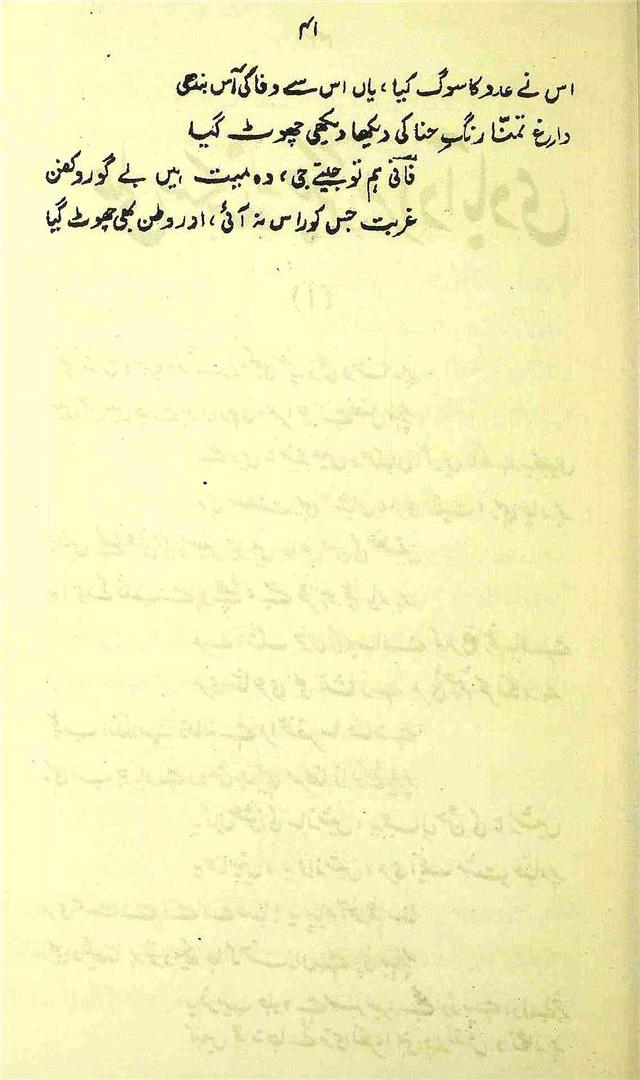 ۴۱
اس نے عدو کا سوگ کیا، یاں اس سے وفا کی آس بندھی
داغِ تمنّا رنگِ حنا کی دیکھا دیکھی چھوٹ گیا
فانیؔ ہم تو جیتے جی، وہ میت ہیں بے گور و کفن
غربت جس کو راس نہ آئی، اور وطن بھی چھوٹ گیا